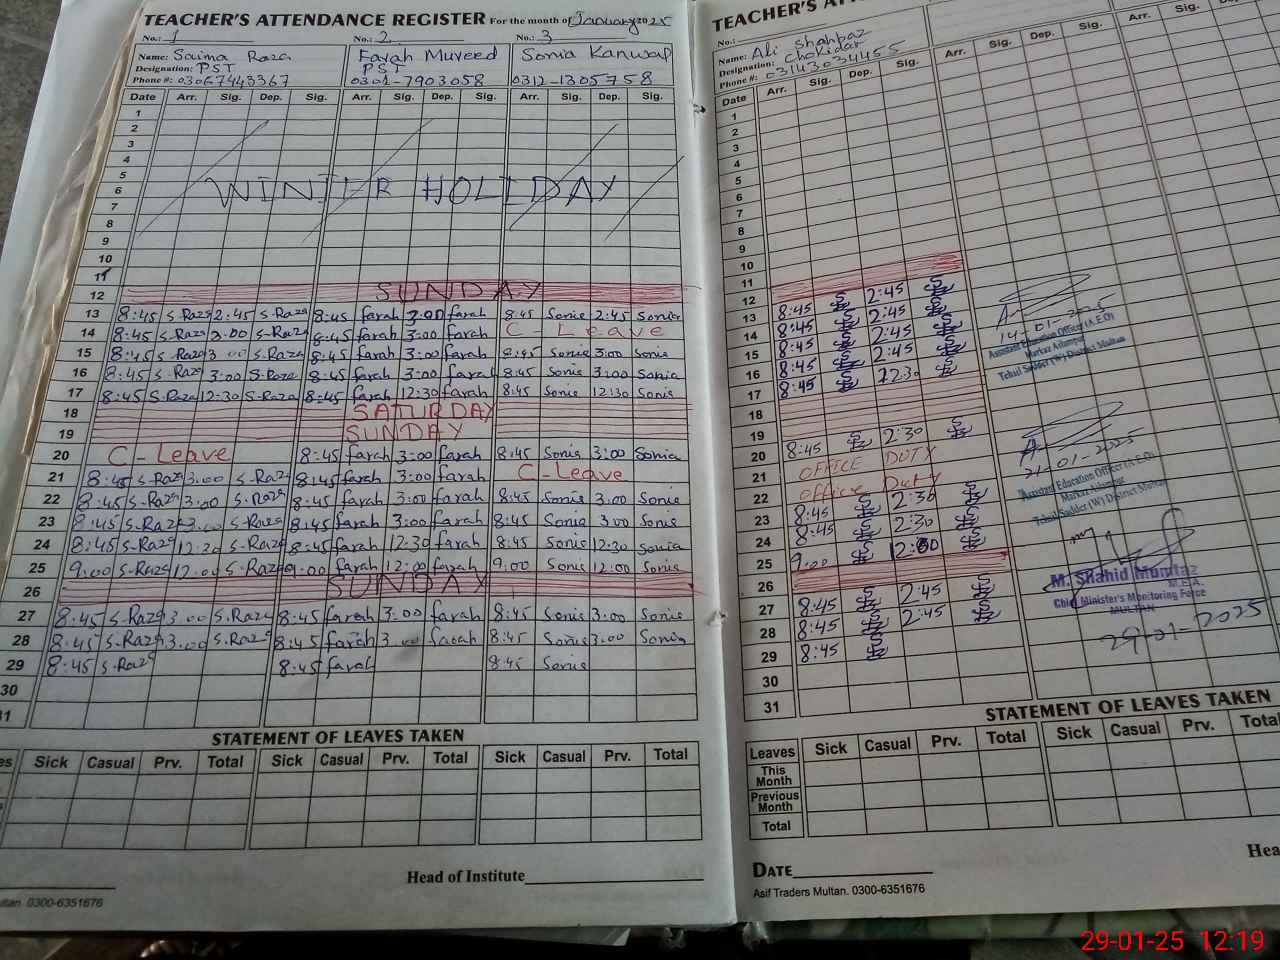 TEACHER'S ATTENDANCE REGISTER For the month of January 2025
No.: 1 No.: 2 No.: 3
Name: Saima Raza Farah Muveed Sonia Kanwal
Designation: PST PST
Phone #: 03067443367 0301-7903058 0312-1305758
Date Arr. Sig. Dep. Sig. Arr. Sig. Dep. Sig. Arr. Sig. Dep. Sig.
1
2
3
4
5
6 WINTER HOLIDAY
7
8
9
10
11
12 SUNDAY
13 8:45 S-Raza 2:45 S-Raza 8:45 farah 3:00 farah 8:45 Sonia 2:45 Sonia
14 8:45 S-Raza 3:00 S-Raza 8:45 farah 3:00 farah C-Leave
15 8:45 S-Raza 3:00 S-Raza 8:45 farah 3:00 farah 8:45 Sonia 3:00 Sonia
16 8:45 S-Raza 3:00 S-Raza 8:45 farah 3:00 farah 8:45 Sonia 3:00 Sonia
17 8:45 S-Raza 12:30 S-Raza 8:45 farah 12:30 farah 8:45 Sonia 12:30 Sonia
18 SATURDAY
19 SUNDAY
20 C-Leave 8:45 farah 3:00 farah 8:45 Sonia 3:00 Sonia
21 8:45 S-Raza 3:00 S-Raza 8:45 farah 3:00 farah C-Leave
22 8:45 S-Raza 3:00 S-Raza 8:45 farah 3:00 farah 8:45 Sonia 3:00 Sonia
23 8:45 S-Raza 3:00 S-Raza 8:45 farah 3:00 farah 8:45 Sonia 3:00 Sonia
24 8:45 S-Raza 12:30 S-Raza 8:45 farah 12:30 farah 8:45 Sonia 12:30 Sonia
25 9:00 S-Raza 12:00 S-Raza 9:00 farah 12:00 farah 9:00 Sonia 12:00 Sonia
26 SUNDAY
27 8:45 S-Raza 3:00 S.Raza 8:45 farah 3:00 farah 8:45 Sonia 3:00 Sonia
28 8:45 S-Raza 3:00 S.Raza 8:45 farah 3:00 farah 8:45 Sonia 3:00 Sonia
29 8:45 S-Raza 8:45 farah 8:45 Sonia
30
31
STATEMENT OF LEAVES TAKEN
Sick Casual Prv. Total Sick Casual Prv. Total Sick Casual Prv. Total
Head of Institute
ultan. 0300-6351676
TEACHER'S ATTE
No.:
Name: Ali Shahbaz
Designation: Chokidar
Phone #: 03143034455
Date Arr. Sig. Dep. Sig. Arr. Sig. Dep. Sig. Arr. Sig.
1
2
3
4
5
6
7
8
9
10
11
12
13 8:45 2:45
14 8:45 2:45
15 8:45 2:45
16 8:45 2:45
17 8:45 12:30
18
19
20 8:45 2:30
21 OFFICE DUTY
22 office Duty
23 8:45 2:30
24 8:45 2:30
25 9:00 12:00
26
27 8:45 2:45
28 8:45 2:45
29 8:45
30
31
14-01-2025
Assistant Education Officer (A.E.O)
Markaz Arlanpur
Tehsil Sadder (W) District Multan
21-01-2025
Assistant Education Officer (A.E.O)
Markaz Arlanpur
Tehsil Sadder (W) District Multan
M. Shahid Mumtaz
M.E.A.
Chief Minister's Monitoring Force
MULTAN
29-01-2025
STATEMENT OF LEAVES TAKEN
Leaves Sick Casual Prv. Total Sick Casual Prv. Total
This Month
Previous Month
Total
DATE
Hea
Asif Traders Multan. 0300-6351676
29-01-25 12:19